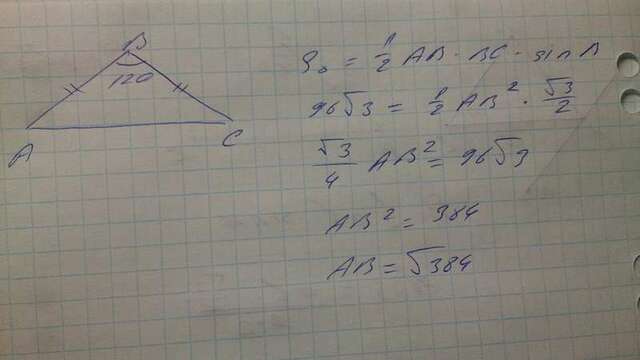 B
120
A
C
S₀ = 1/2 AB · BC · sin B
96√3 = 1/2 AB² · √3/2
√3/4 AB² = 96√3
AB² = 384
AB = √384